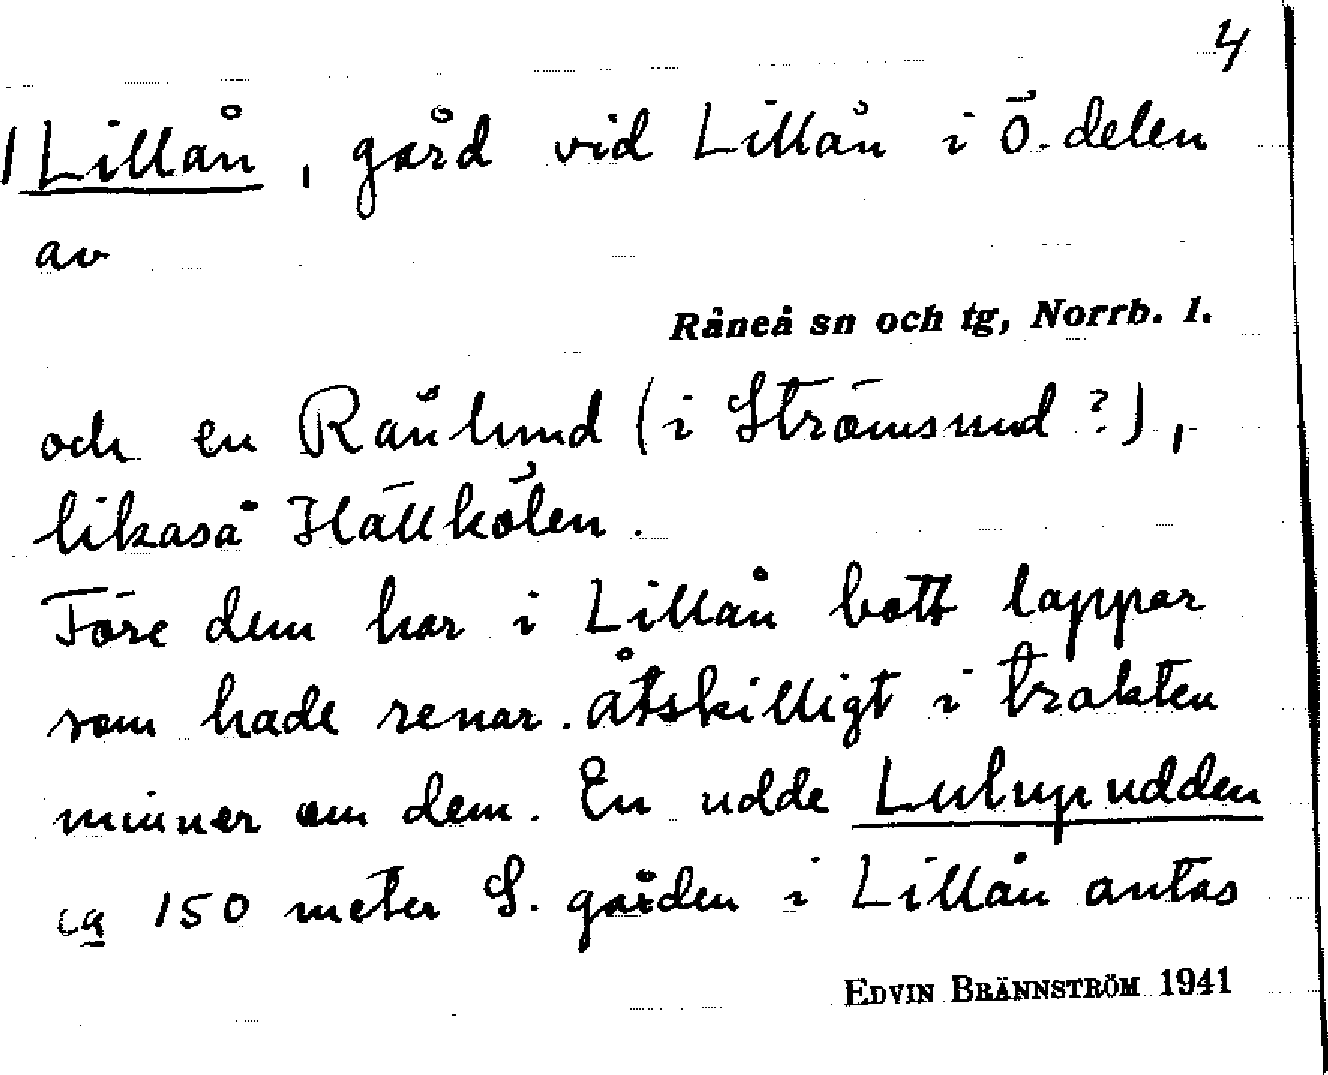 4
1 Lillån, gård vid Lillån i Ö. delen
av
Råneå sn och tg, Norrb. l.
och en Rånlund (i Strömsund?),
likaså Hällkölen.
Före dem har i Lillån bott lappar
som hade renar. Åtskilligt i trakten
minner om dem. En udde Lulupudden
ca 150 meter S. gården i Lillån antas
EDVIN BRÄNNSTRÖM 1941